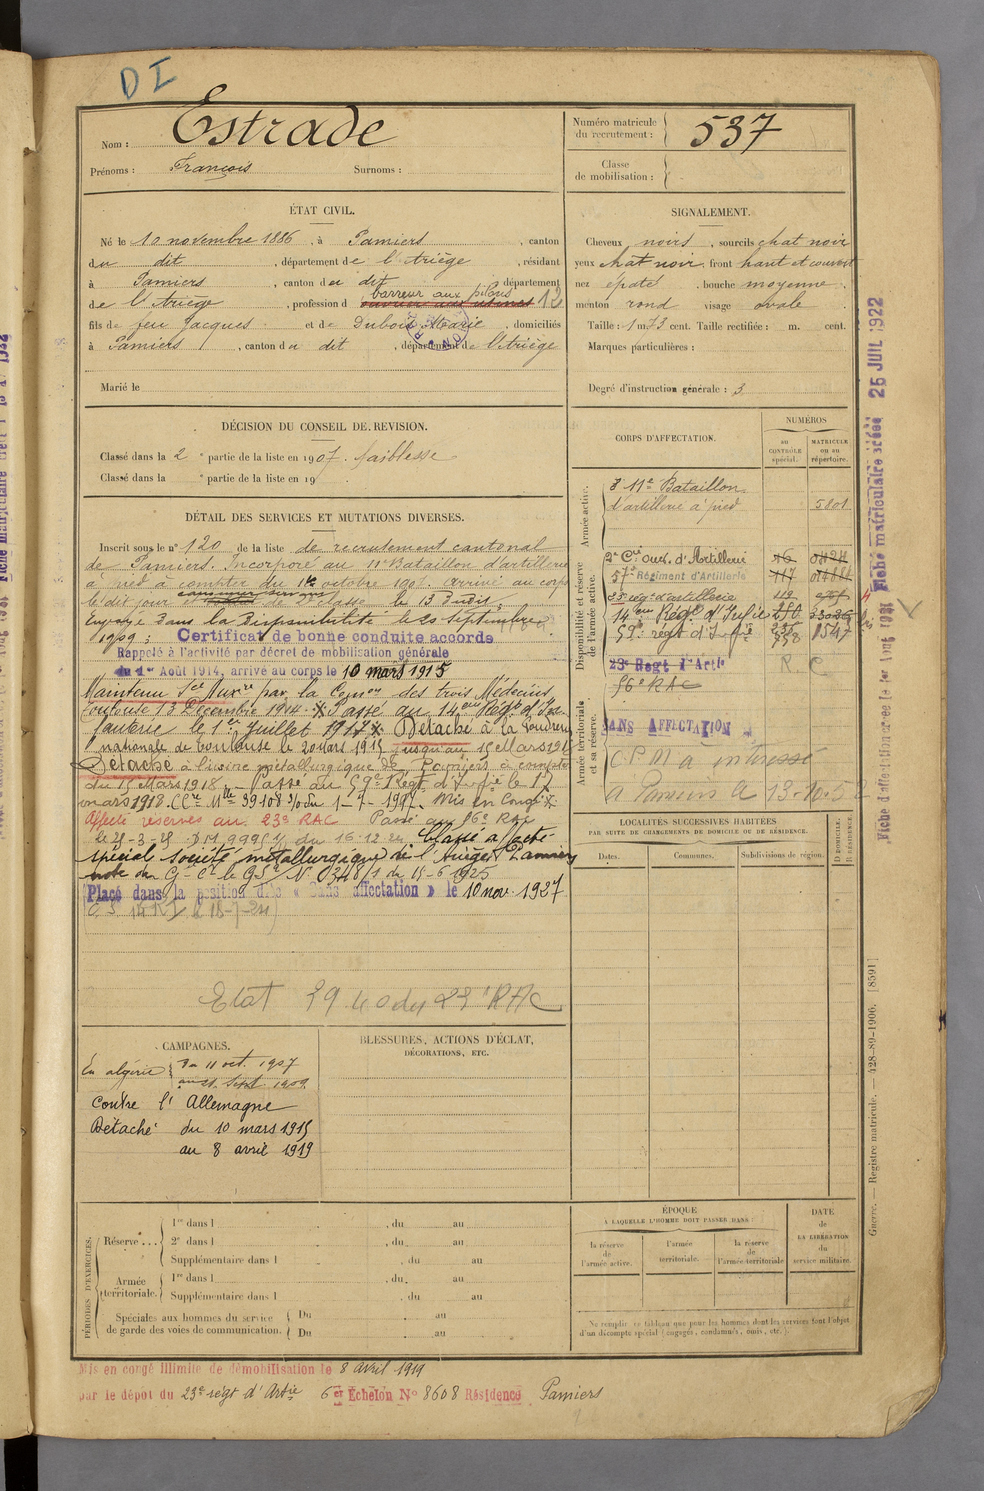 DI
Nom : Estrade
Prénoms : François Surnoms :
Numéro matricule du recrutement : 537
Classe de mobilisation :
ÉTAT CIVIL.
Né le 10 novembre 1886, à Pamiers, canton
du dit, département de l'Ariège, résidant
à Pamiers, canton du dit, département
barreur aux pilons
de l'Ariège, profession d ouvrier aux usines 12
fils de feu Jacques et de Dubois Marie, domiciliés
à Pamiers, canton du dit, département de l'Ariège
Marié le
SIGNALEMENT.
Cheveux noirs, sourcils chat noir
yeux chat noir, front haut et couvert
nez épaté, bouche moyenne
menton rond visage ovale
Taille : 1 m 73 cent. Taille rectifiée : m. cent.
Marques particulières :
Degré d'instruction générale : 3
DÉCISION DU CONSEIL DE REVISION.
Classé dans la 2e partie de la liste en 1907. faiblesse
Classé dans la e partie de la liste en 19
DÉTAIL DES SERVICES ET MUTATIONS DIVERSES.
Inscrit sous le n° 120 de la liste de recrutement cantonal
de Pamiers. Incorporé au 11e Bataillon d'artillerie
à pied à compter du 1er octobre 1907. arrivé au corps
le dit jour et de 2e classe le 13 dudit,
Envoyé dans la disponibilité le 20 septembre
1909 ; Certificat de bonne conduite accordé
Rappelé à l'activité par décret de mobilisation générale
du 1er Août 1914, arrivé au corps le 10 mars 1915
Maintenu Sce Auxre par la Comon des trois Médecins
Toulouse 13 Décembre 1914. Passé au 14me Régt d'In-
fanterie le 1er Juillet 1917. Détaché à la Poudrerie
nationale de Toulouse le 20 mars 1915 jusqu'au 15 Mars 1918
Détaché à l'usine métallurgique de Pamiers à compter
du 15 Mars 1918 - Passé au 59e Régt d'Infie le 17
mars 1918. Cre Mlle 39108 du 1-7-1917. Mis en Congé
Affecté réserves au 23e RAC Passé au 56e RAC
le 25-3-25 DM 9995 du 16.12.24 Classé affecté
spécial société métallurgique de l'Ariège Pamiers
note du G- le GSe N° 0348/1 du 15-6-1925
Placé dans la position dite « Sans affectation » le 10 nov. 1927
Etat 39 40 du 23e RAC
CORPS D'AFFECTATION.
NUMÉROS
AU CONTRÔLE spécial.
MATRICULE OU AU répertoire.
Armée active.
11e Bataillon
d'artillerie à pied 5801
Disponibilité et réserve de l'armée active.
2e Cie ouv. d'Artillerie 16
57e Régiment d'Artillerie 117
23e rég. d'artillerie 112
14eme Régt d'Infie
59e régt d'Infie 558 8547
23e Régt d'Artie R C
56e RAC
Armée territoriale et sa réserve.
SANS AFFECTATION
C.P.M à intéressé
à Pamiers le 13-10-52
LOCALITÉS SUCCESSIVES HABITÉES
PAR SUITE DE CHANGEMENTS DE DOMICILE OU DE RÉSIDENCE.
Dates. Communes. Subdivisions de région.
D DOMICILE. R RÉSIDENCE.
CAMPAGNES.
En algérie du 11 oct. 1907
au 21 Sept. 1909
Contre l'Allemagne
Détaché du 10 mars 1915
au 8 avril 1919
BLESSURES, ACTIONS D'ÉCLAT,
DÉCORATIONS, ETC.
PÉRIODES D'EXERCICES.
Réserve...
1re dans l , du au
2e dans l , du au
Supplémentaire dans l , du au
Armée territoriale.
1re dans l , du au
Supplémentaire dans l , du au
Spéciales aux hommes du service
de garde des voies de communication.
Du au
Du au
ÉPOQUE
À LAQUELLE L'HOMME DOIT PASSER DANS :
la réserve de l'armée active.
l'armée territoriale.
la réserve de l'armée territoriale
DATE de LA LIBÉRATION du service militaire.
Ne remplir ce tableau que pour les hommes dont les services font l'objet
d'un décompte spécial (engagés, condamnés, omis, etc.).
Mis en congé illimité de démobilisation le 8 avril 1919
par le dépôt du 23e régt d'Artie 6e Echelon N° 8608 Résidence Pamiers
Fiche matriculaire créée 25 JUIL 1922
Fiche d'affectation créée le 1er Août 1931
Guerre. — Registre matricule. — 428-89-1906. [8591]